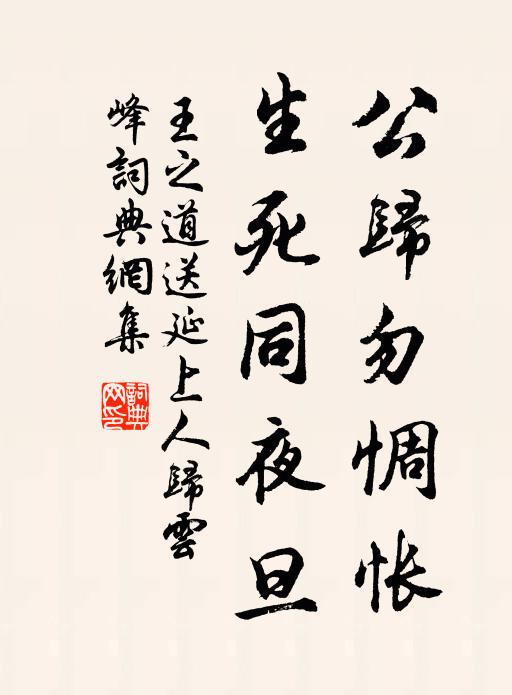 公歸勿惆怅
生死同夜旦
王之道送延上人歸雲
峰詞典網集
詞典网印